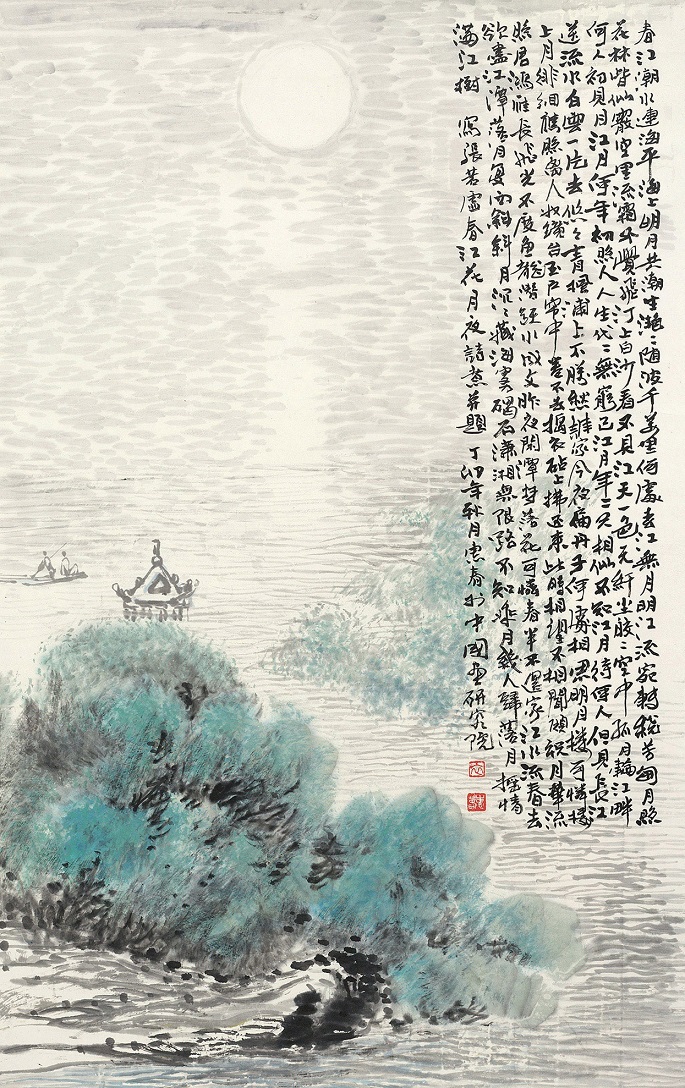 春江潮水連海平海上明月共潮生灔々随波千萬里何處春江無月明江流宛轉繞芳甸月照
花林皆似霰空里流霜不覺飛汀上白沙看不見江天一色无纖尘皎々空中孤月輪江畔
何人初見月江月何年初照人人生代々無窮已江月年々只相似不知江月待何人但見長江
送流水白雲一片去悠々青楓浦上不勝愁誰家今夜扁舟子何處相思明月樓可憐樓
上月徘徊應照离人妝鏡台玉户帘中卷不去搗衣砧上拂還來此時相望不相聞願逐月華流
照君鴻雁長飛光不度魚龍潛躍水成文昨夜闲潭夢落花可憐春半不還家江水流春去
欲盡江潭落月復西斜斜月沉々藏海霧碣石瀟湘無限路不知乘月幾人歸落月摇情
滿江樹 寫張若虛春江花月夜詩意并題 丁卯年秋月春於中國画研究院